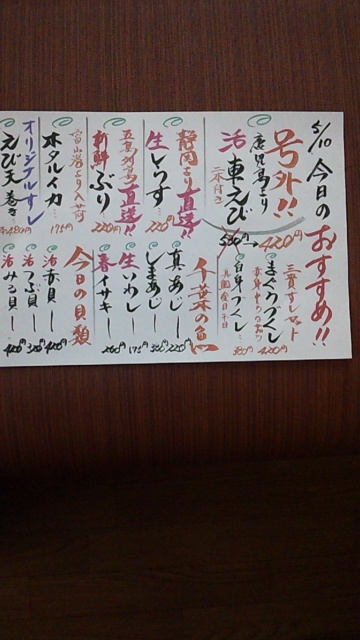 5/10 今日のおすすめ!!
号外!!
鹿児島より
活 車えび
二本付き
580円→420円
三貫すしセット
まぐろづくし
420円
白身づくし
380円
静岡より直送!!
生しらす… 220円
五島列島直送!!
新鮮 ぶり 220円
千葉の魚
真あじ― 220円
しまあじ― 320円
生いわし― 175円
春イサキ― 260円
富山湾より入荷
ホタルイカ… 175円
オリジナルすし
えび天巻き… 480円
今日の貝類
活赤貝― 420円
活つぶ貝― 320円
活みる貝― 420円